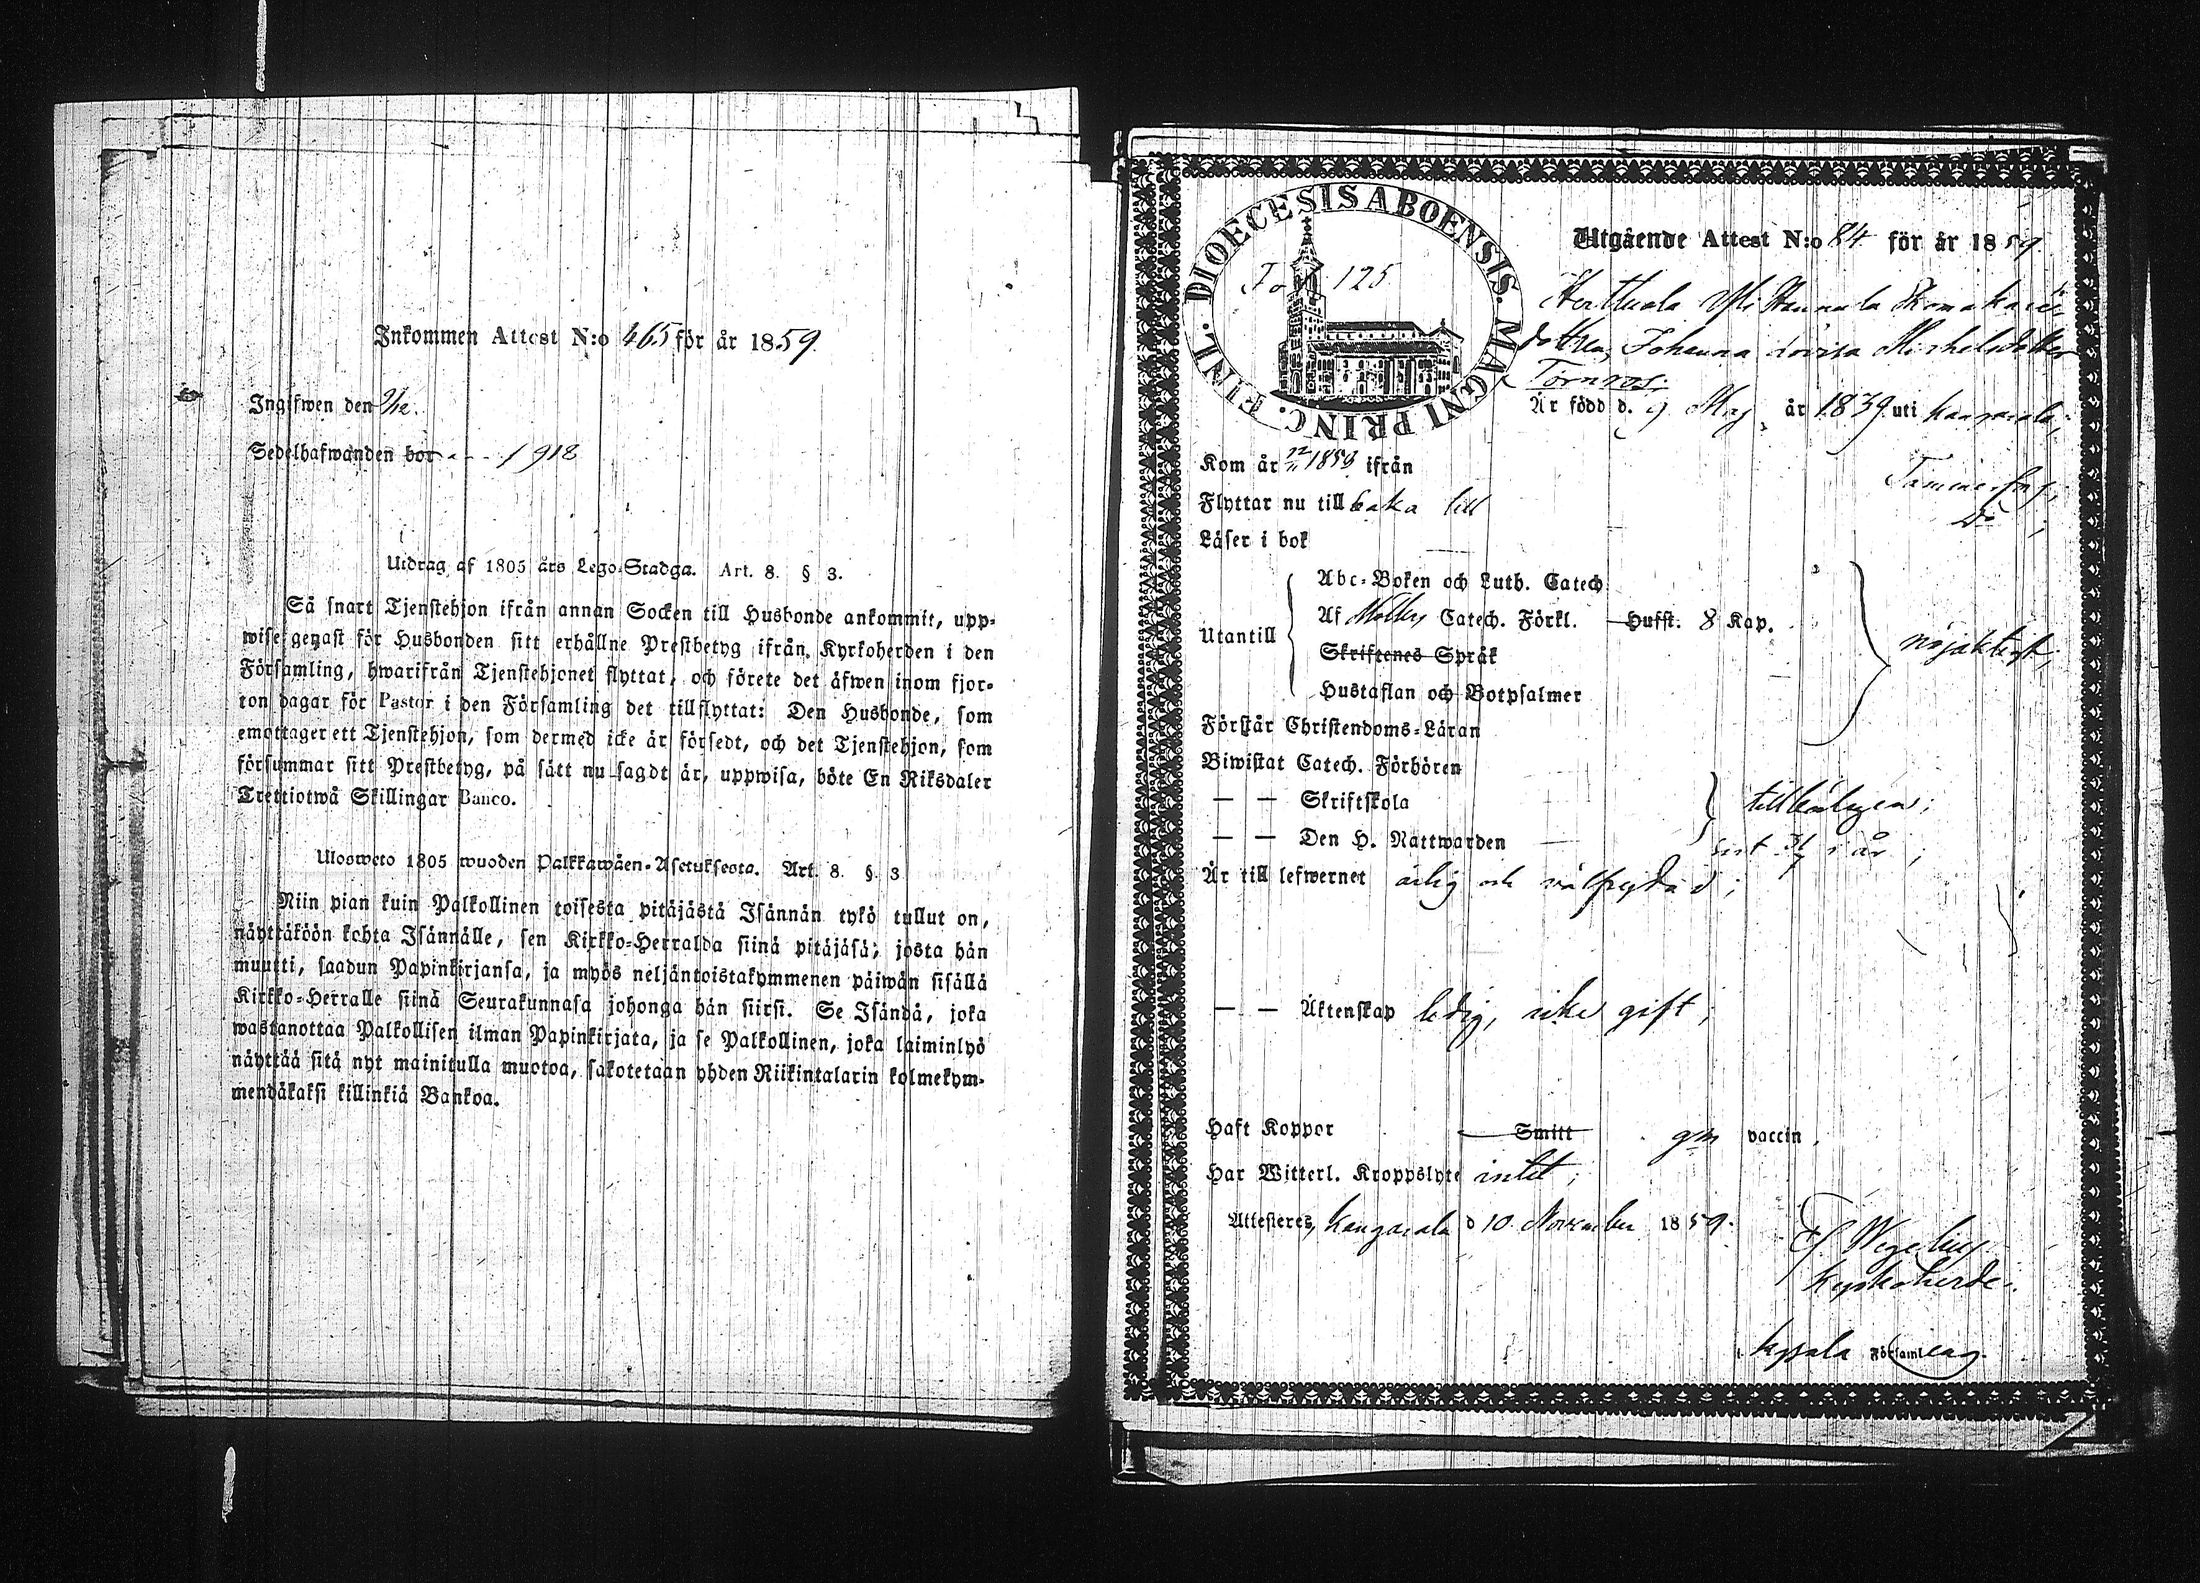 Inkommen Attest N:o 465 för år 1859.
Ingifwen den 2/12.
Sedelhafwanden bor 1918
Utdrag af 1805 års Lego-Stadga. Art. 8. § 3.
Så snart Tjenstehjon ifrån annan Socken till Husbonde ankommit, upp-
wise genast för Husbonden sitt erhållne Prestbetyg ifrån Kyrkoherden i den
Församling, hwarifrån Tjenstehjonet flyttat, och förete det äfwen inom fjor-
ton dagar för Pastor i den Församling det tillflyttat: Den Husbonde, som
emottager ett Tjenstehjon, som dermed icke är försedt, och det Tjenstehjon, som
försummar sitt Prestbetyg, på sätt nu sagdt är, uppwisa, böte En Riksdaler
Trettiotwå Skillingar Banco.
Ulosweto 1805 wuoden Palkkawäen-Asetuksesta. Art. 8. §. 3
Niin pian kuin Palkollinen toisesta pitäjästä Isännän tykö tullut on,
näyttäköön kohta Isännälle, sen Kirkko-Herralda siinä pitäjäsä, josta hän
muutti, saadun Papinkirjansa, ja myös neljäntoistakymmenen päiwän sisällä
Kirkko-Herralle siinä Seurakunnasa johonga hän siirsi. Se Isändä, joka
wastanottaa Palkollisen ilman Papinkirjata, ja se Palkollinen, joka laiminlyö
näyttää sitä nyt mainitulla muotoa, sakotetaan yhden Riikintalarin kolmekym-
mendäkaksi killinkiä Bankoa.
DIOECESIS ABOENSIS. MAGNI PRINC. FINL.
Fol 125
Utgående Attest N:o 84 för år 1859
Hannula Skomakare
dottren Johanna Lovisa Michelsdotter
Törnros;
Är född d. 9 Maj år 1839 uti Kangasala;
Kom år 1859 ifrån Tammerfors;
Flyttar nu till baka till Do;
Läser i bok
Utantill
Abc-Boken och Luth. Catech.
Af Möllers Catech. Förkl. Hufst. 8 Kap.
Skriftenes Språk
Hustaflan och Botpsalmer
nöjaktigt;
Förstår Christendoms-Läran
Biwistat Catech. Förhören
— — Skriftskola
tillbörligen;
— — Den H. Nattwarden sist 31/7 i år;
Är till lefwernet ärlig och välfrejdad;
— — Äktenskap ledig, icke gift;
Haft Koppor Smitt gm vaccin,
Har Witterl. Kroppslyte intet;
Attesteres, Kangasala d 10 November 1859.
Wegelius
Kyrkoherde
i Kgsala Församling.